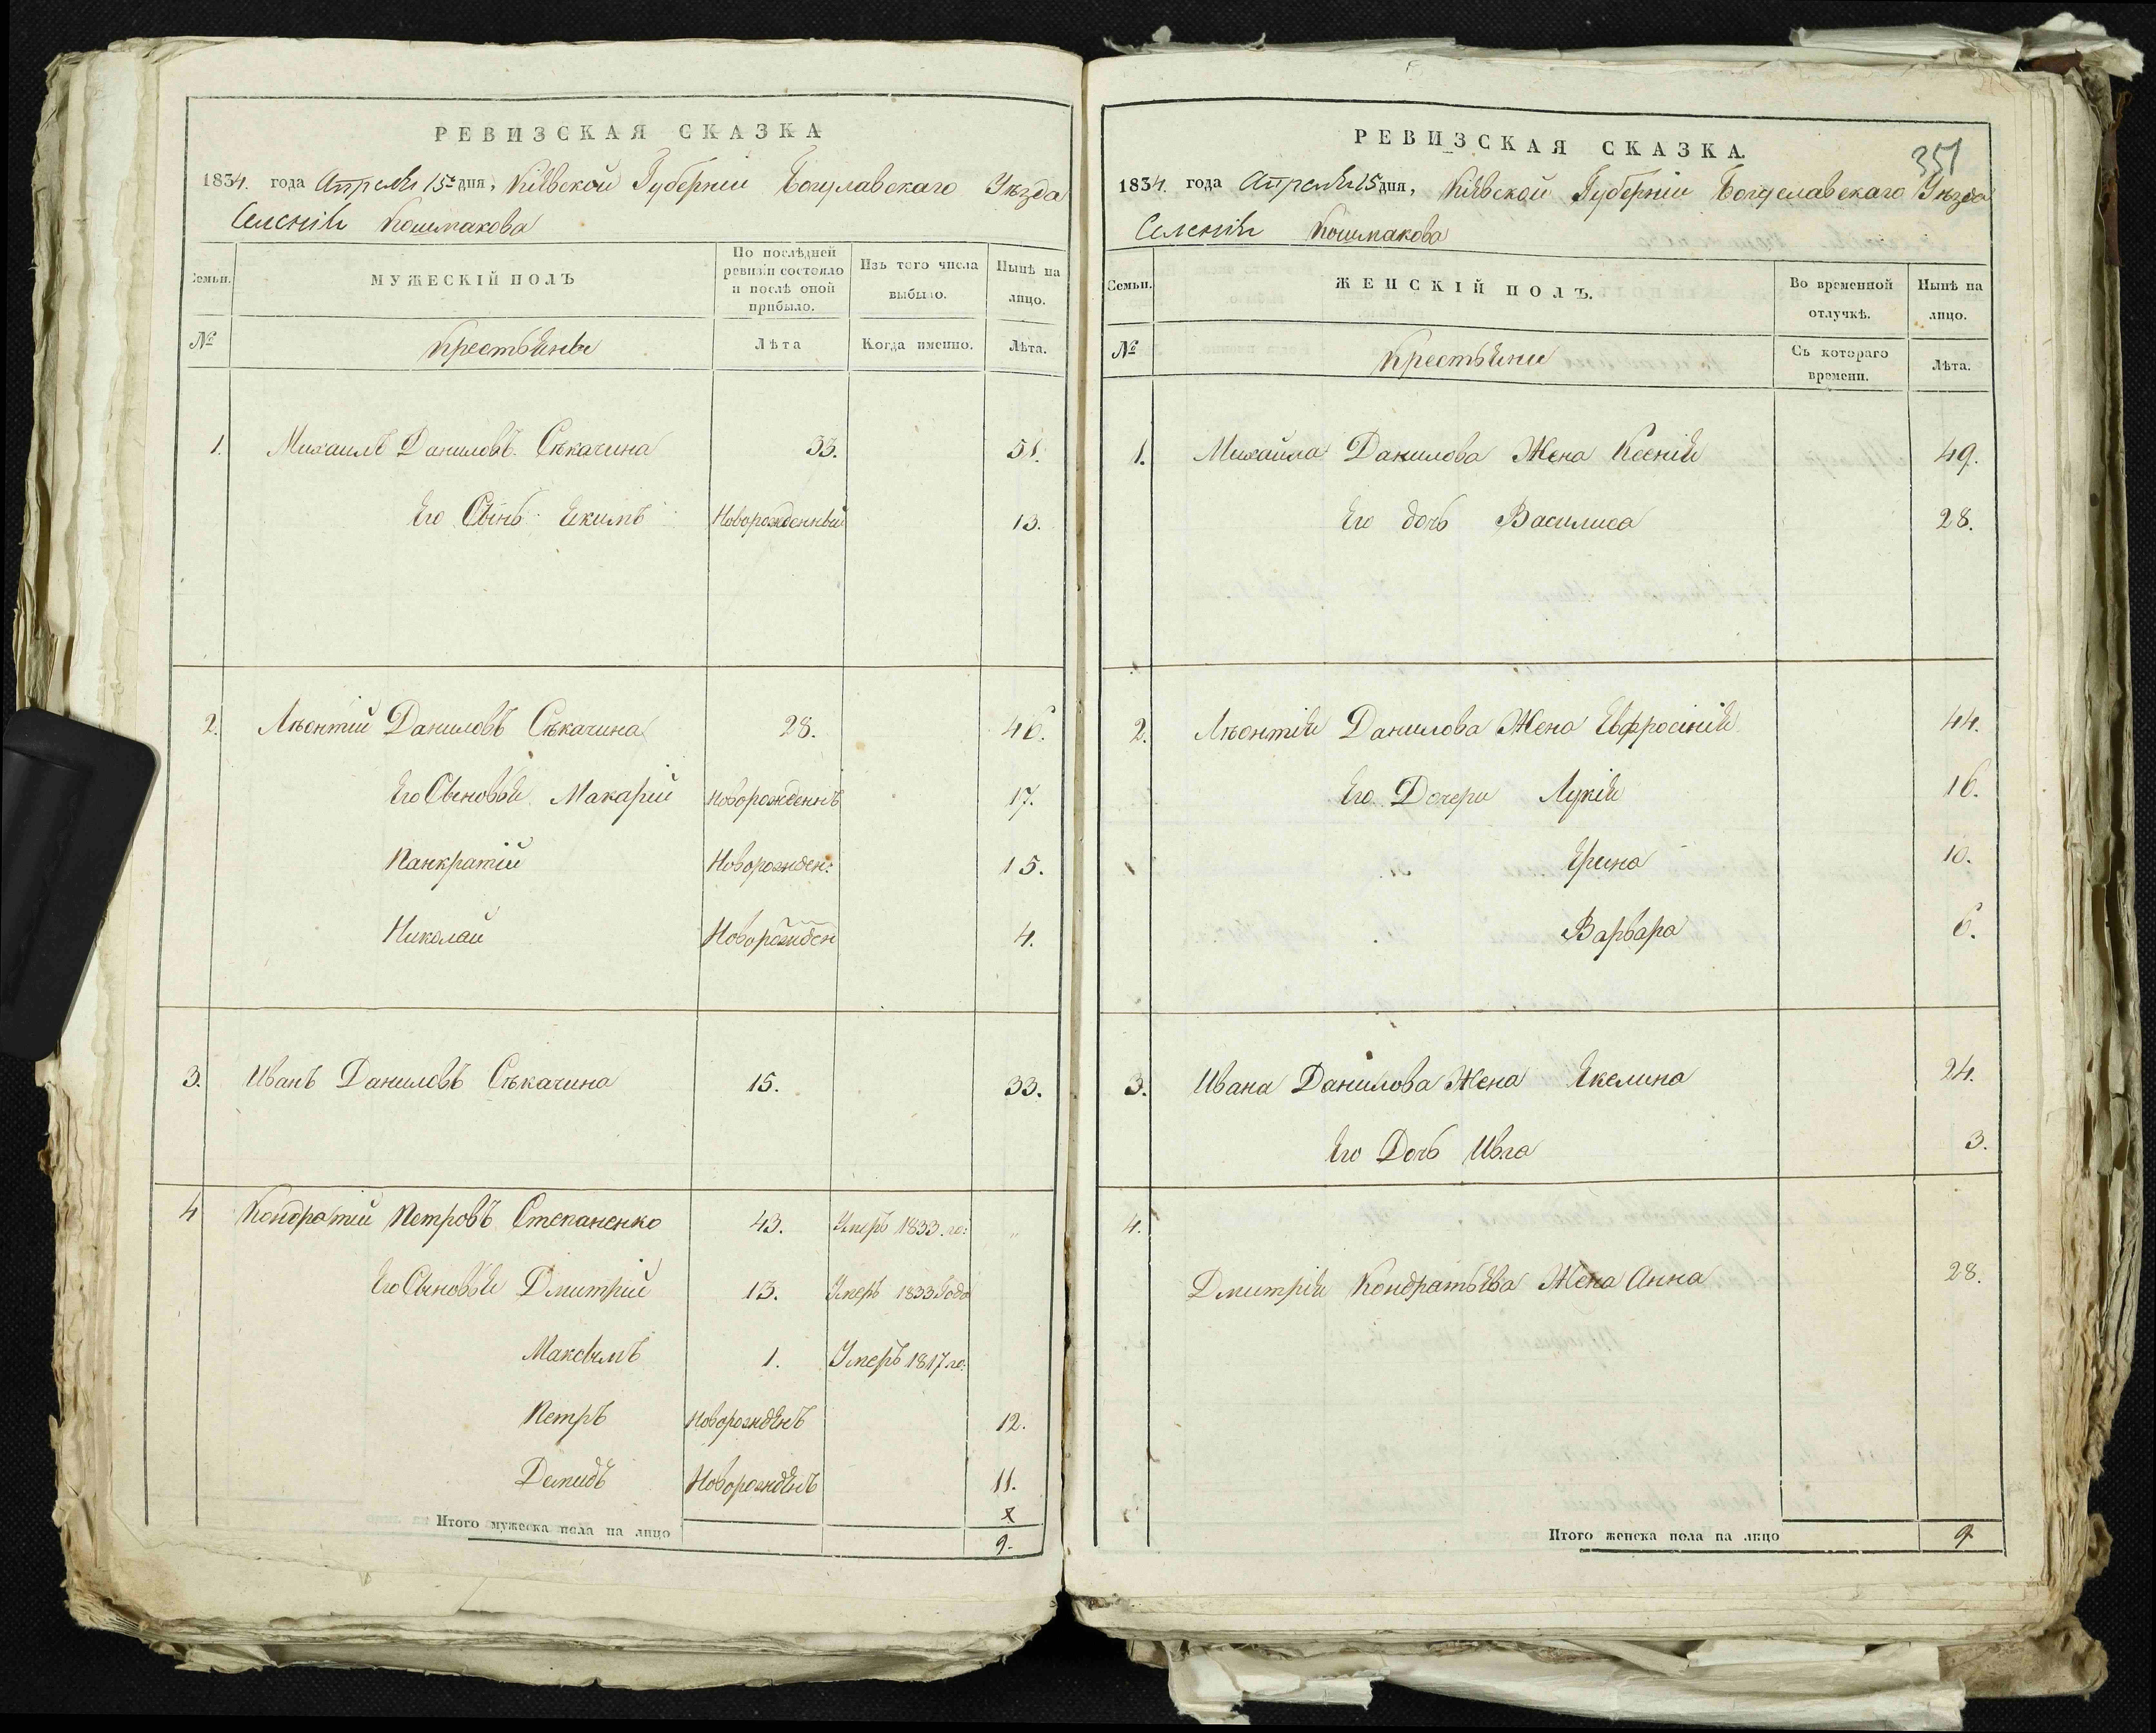 РЕВИЗСКАЯ СКАЗКА
1834. года Апреля 15го дня, Кіевской Губерніи Богуславскаго Уѣзда
Селенія Кошмакова
Семьи. МУЖЕСКІЙ ПОЛЪ По послѣдней ревизіи состояло и послѣ оной прибыло. Изъ того числа выбыло. Нынѣ на лицо.
№ Крестьяны Лѣта Когда именно. Лѣта.
1. Михаилъ Даниловъ Сѣкачина 33. 51.
Его Сынъ Екимъ Новорожденный 13.
2. Лѣонтій Даниловъ Сѣкачина 28. 46.
Его Сыновья Макарій Новорожденнъ 17.
Панкратій Новорожден: 15.
Николай Новорожден 4.
3. Иванъ Даниловъ Сѣкачина 15. 33.
4 Кондратій Петровъ Степаненко 43. Умеръ 1833. го: "
Его Сыновья Дмитрій 13. Умеръ 1833 Года
Максымъ 1. Умеръ 1817 го:
Петръ Новорождѣнъ 12.
Демидъ Новорождѣнъ 11.
Итого мужеска пола на лицо 9.
351
РЕВИЗСКАЯ СКАЗКА.
1834. года Апреля 15 дня, Кіевской Губерніи Богуславскаго Уѣзда
Селенія Кошмакова
Семьи. ЖЕНСКІЙ ПОЛЪ. Во временной отлучкѣ. Нынѣ на лицо.
№ Крестьяни Съ котораго времени. Лѣта.
1. Михайла Данилова Жена Ксенія 49.
Его дочь Василиса 28.
2. Лѣонтія Данилова Жена Евфросінія 44.
Его Дочери Лукія 16.
Ярина 10.
Варвара 6.
3. Ивана Данилова Жена Якелина 24.
Его Дочь Ивга 3.
4.
Дмитрія Кондратьева Жена Анна 28.
Итого женска пола на лицо 9